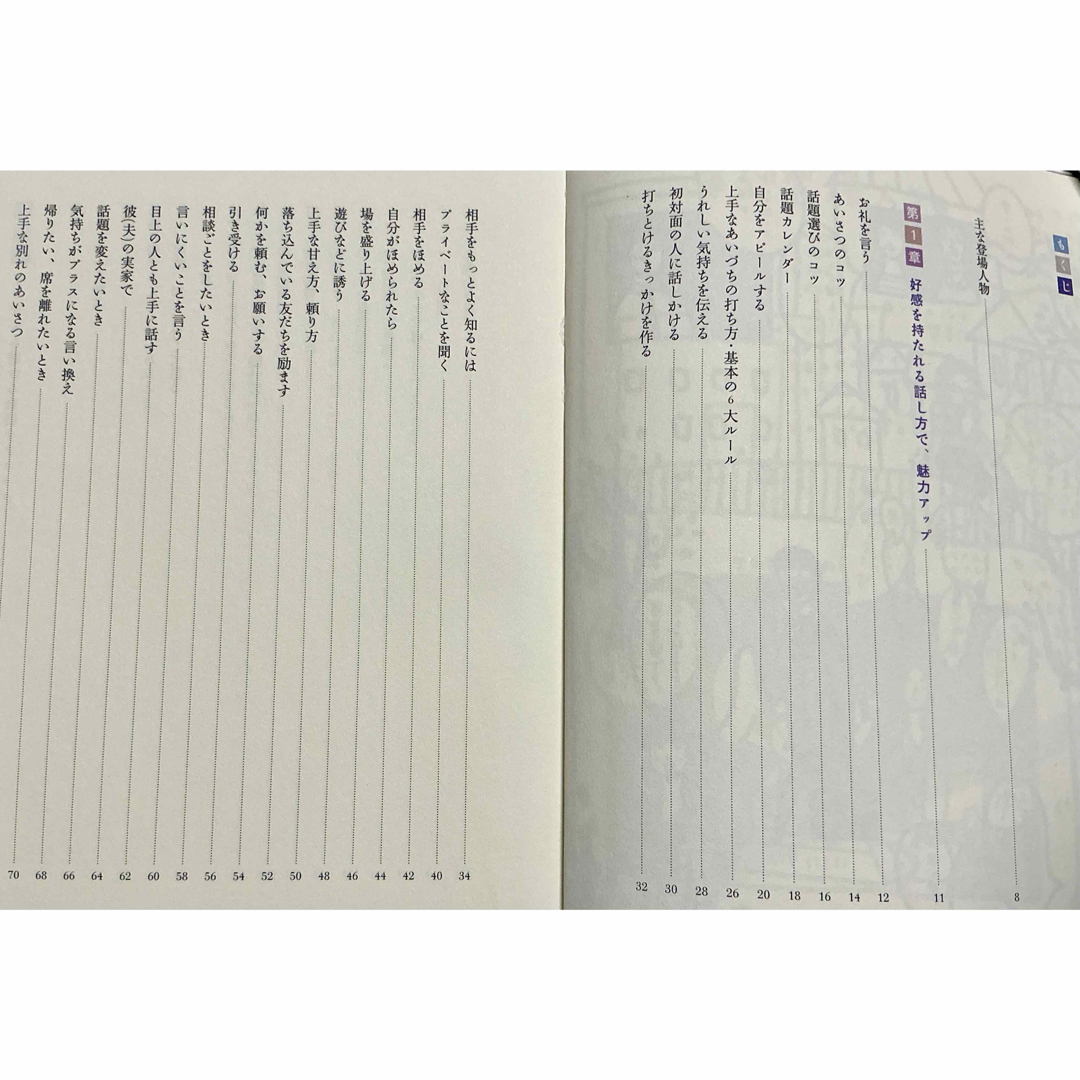 もくじ
主な登場人物 8
第1章 好感を持たれる話し方で、魅力アップ 11
お礼を言う 12
あいさつのコツ 14
話題選びのコツ 16
話題カレンダー 18
自分をアピールする 20
上手なあいづちの打ち方・基本の6大ルール 26
うれしい気持ちを伝える 28
初対面の人に話しかける 30
打ちとけるきっかけを作る 32
相手をもっとよく知るには 34
プライベートなことを聞く 40
相手をほめる 42
自分がほめられたら 44
場を盛り上げる 46
遊びなどに誘う 48
上手な甘え方、頼り方 50
落ち込んでいる友だちを励ます 52
何かを頼む、お願いする 54
引き受ける 56
相談ごとをしたいとき 58
言いにくいことを言う 60
目上の人とも上手に話す 62
彼(夫)の実家で 64
話題を変えたいとき 66
気持ちがプラスになる言い換え 68
帰りたい、席を離れたいとき 70
上手な別れのあいさつ